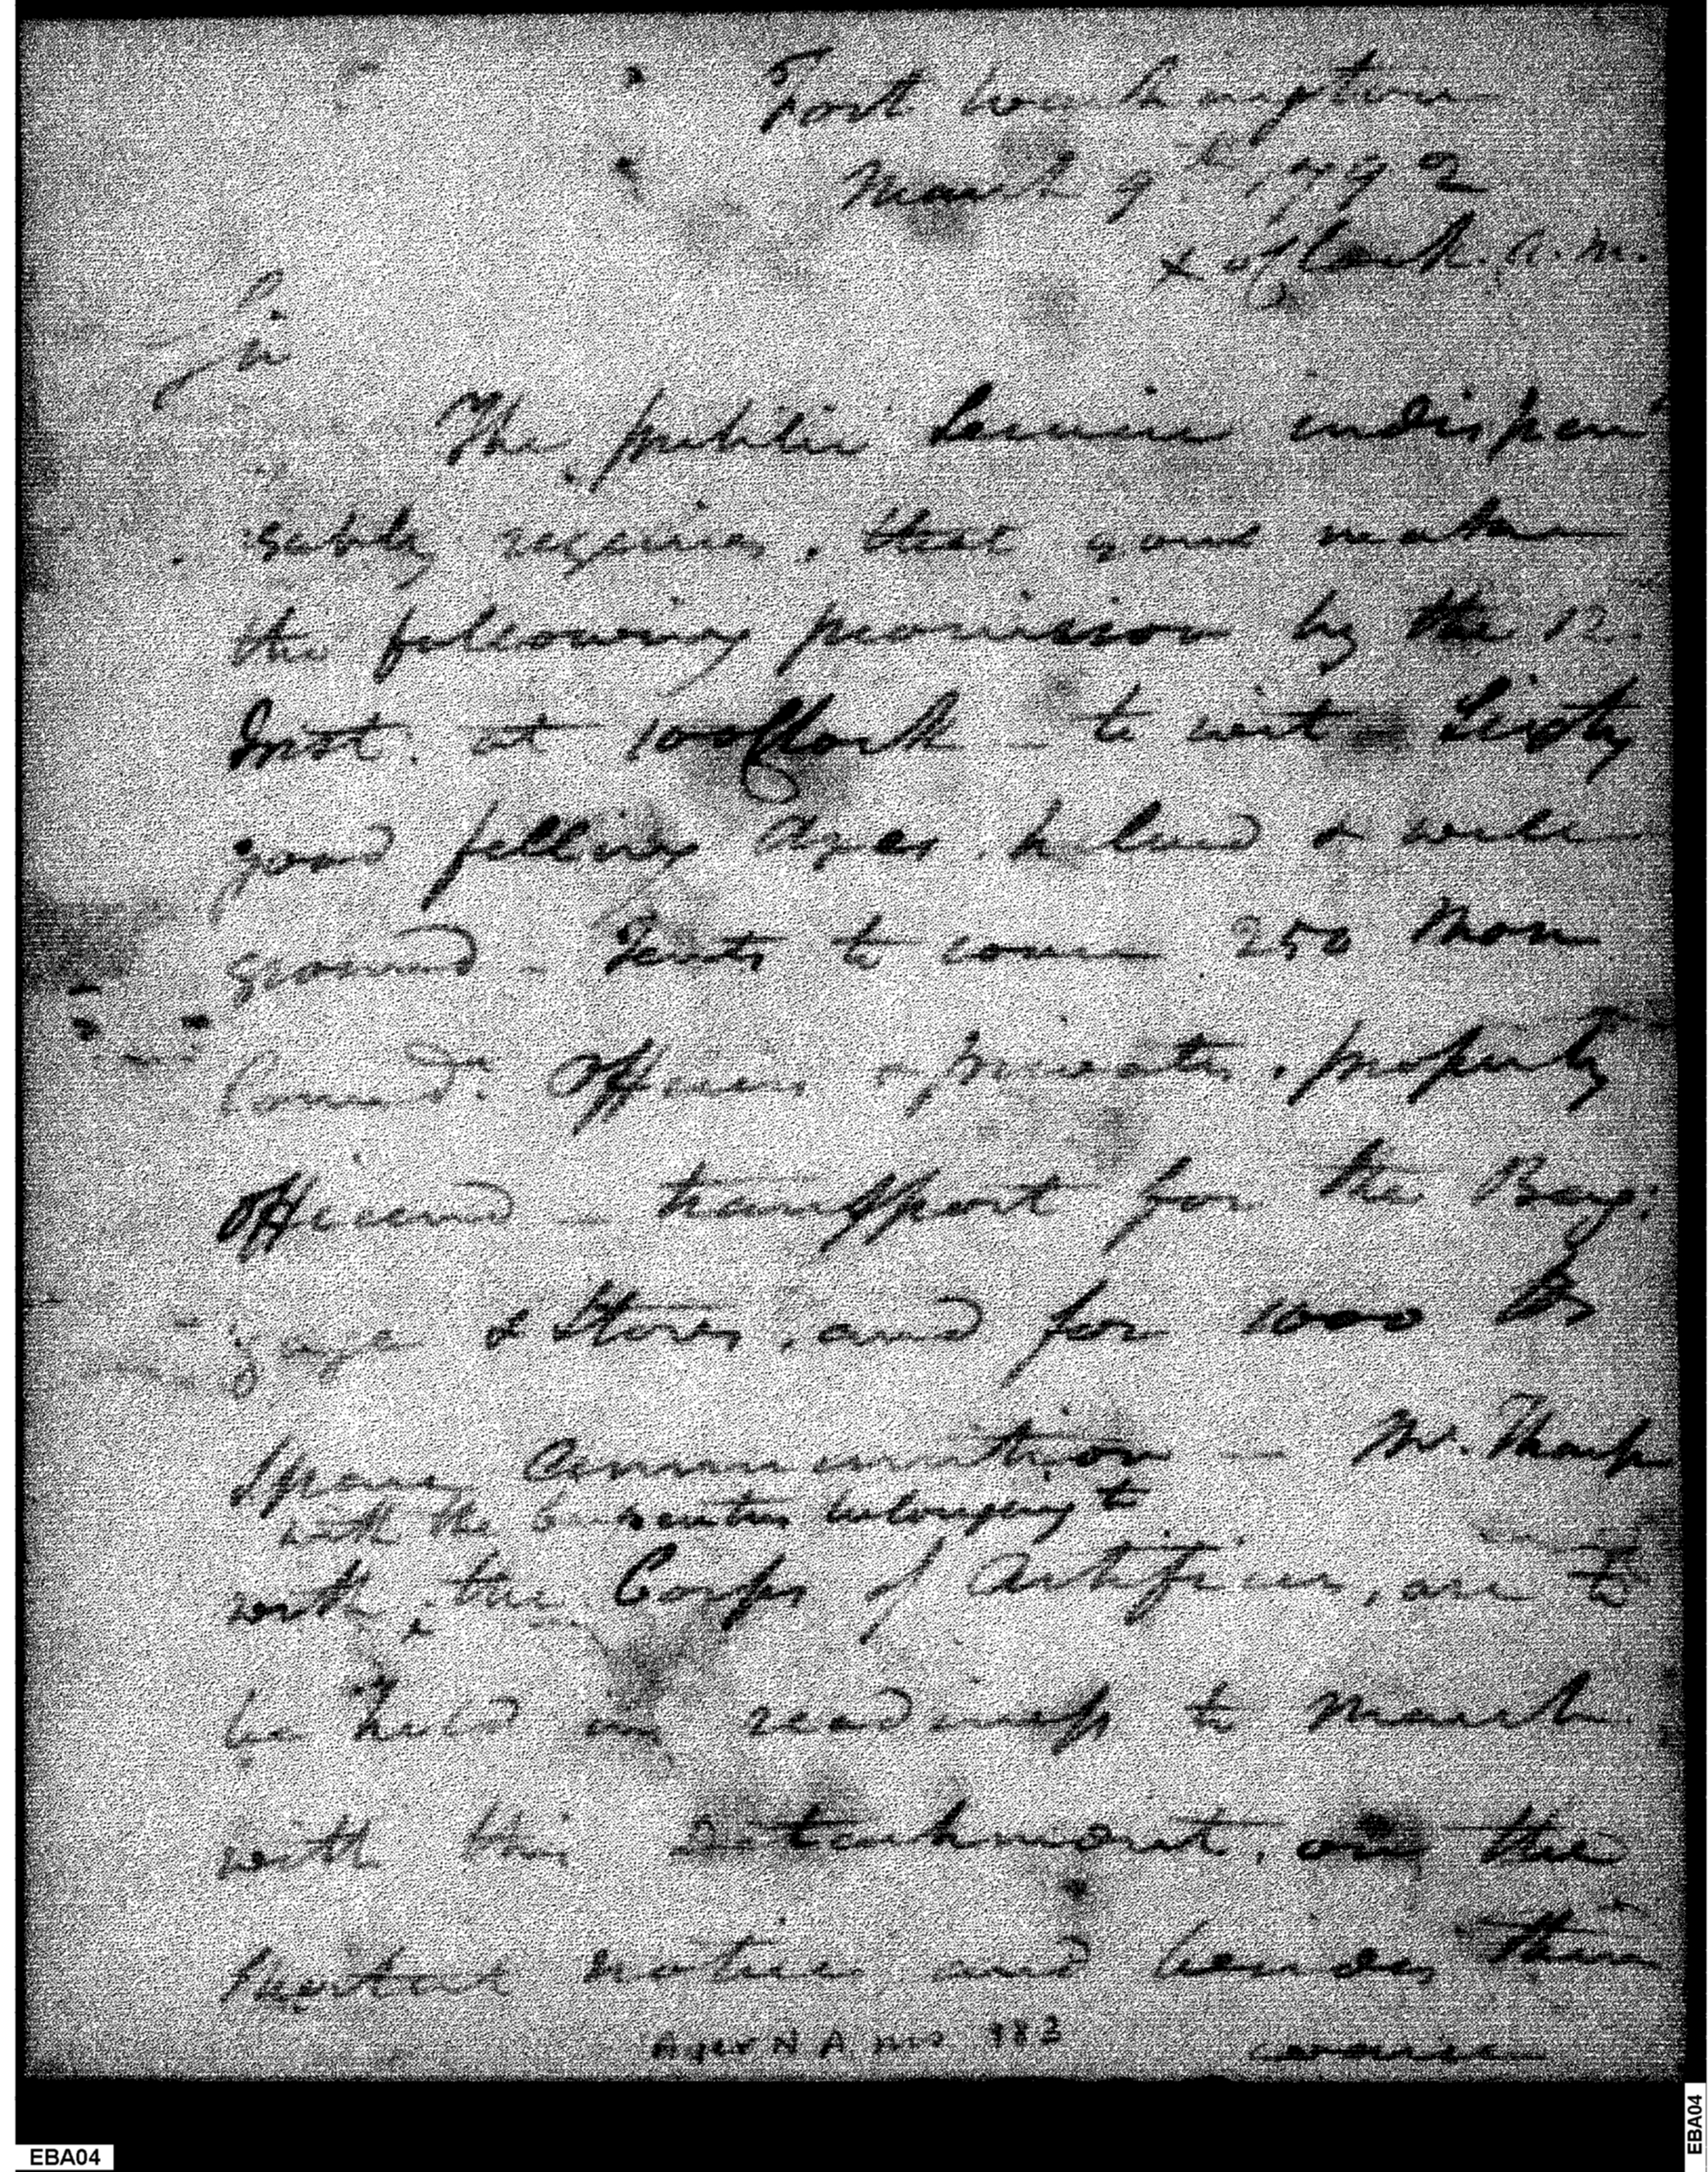 Fort Washington
March 9th 1792
x oClock. a.m.
Sir
The public Service indispen
sably requires, that you make
the following provision by the 12
Inst. at 10 oClock – to wit – Sixty
good felling Axes, helved & well
ground – Tents to cover 250 Non
Comd. Officers & privates, properly
Officered – transport for the Bag:
gage & Stores, and for 1000 lbs
spare ammunition – Mr. Tharp
with the belonging to
with, the Corps of Artificers, are to
be held in readiness to March
with this Detachment, on the
shortest notice and besides their
Ayer N A ms 983
EBA04
EBA04